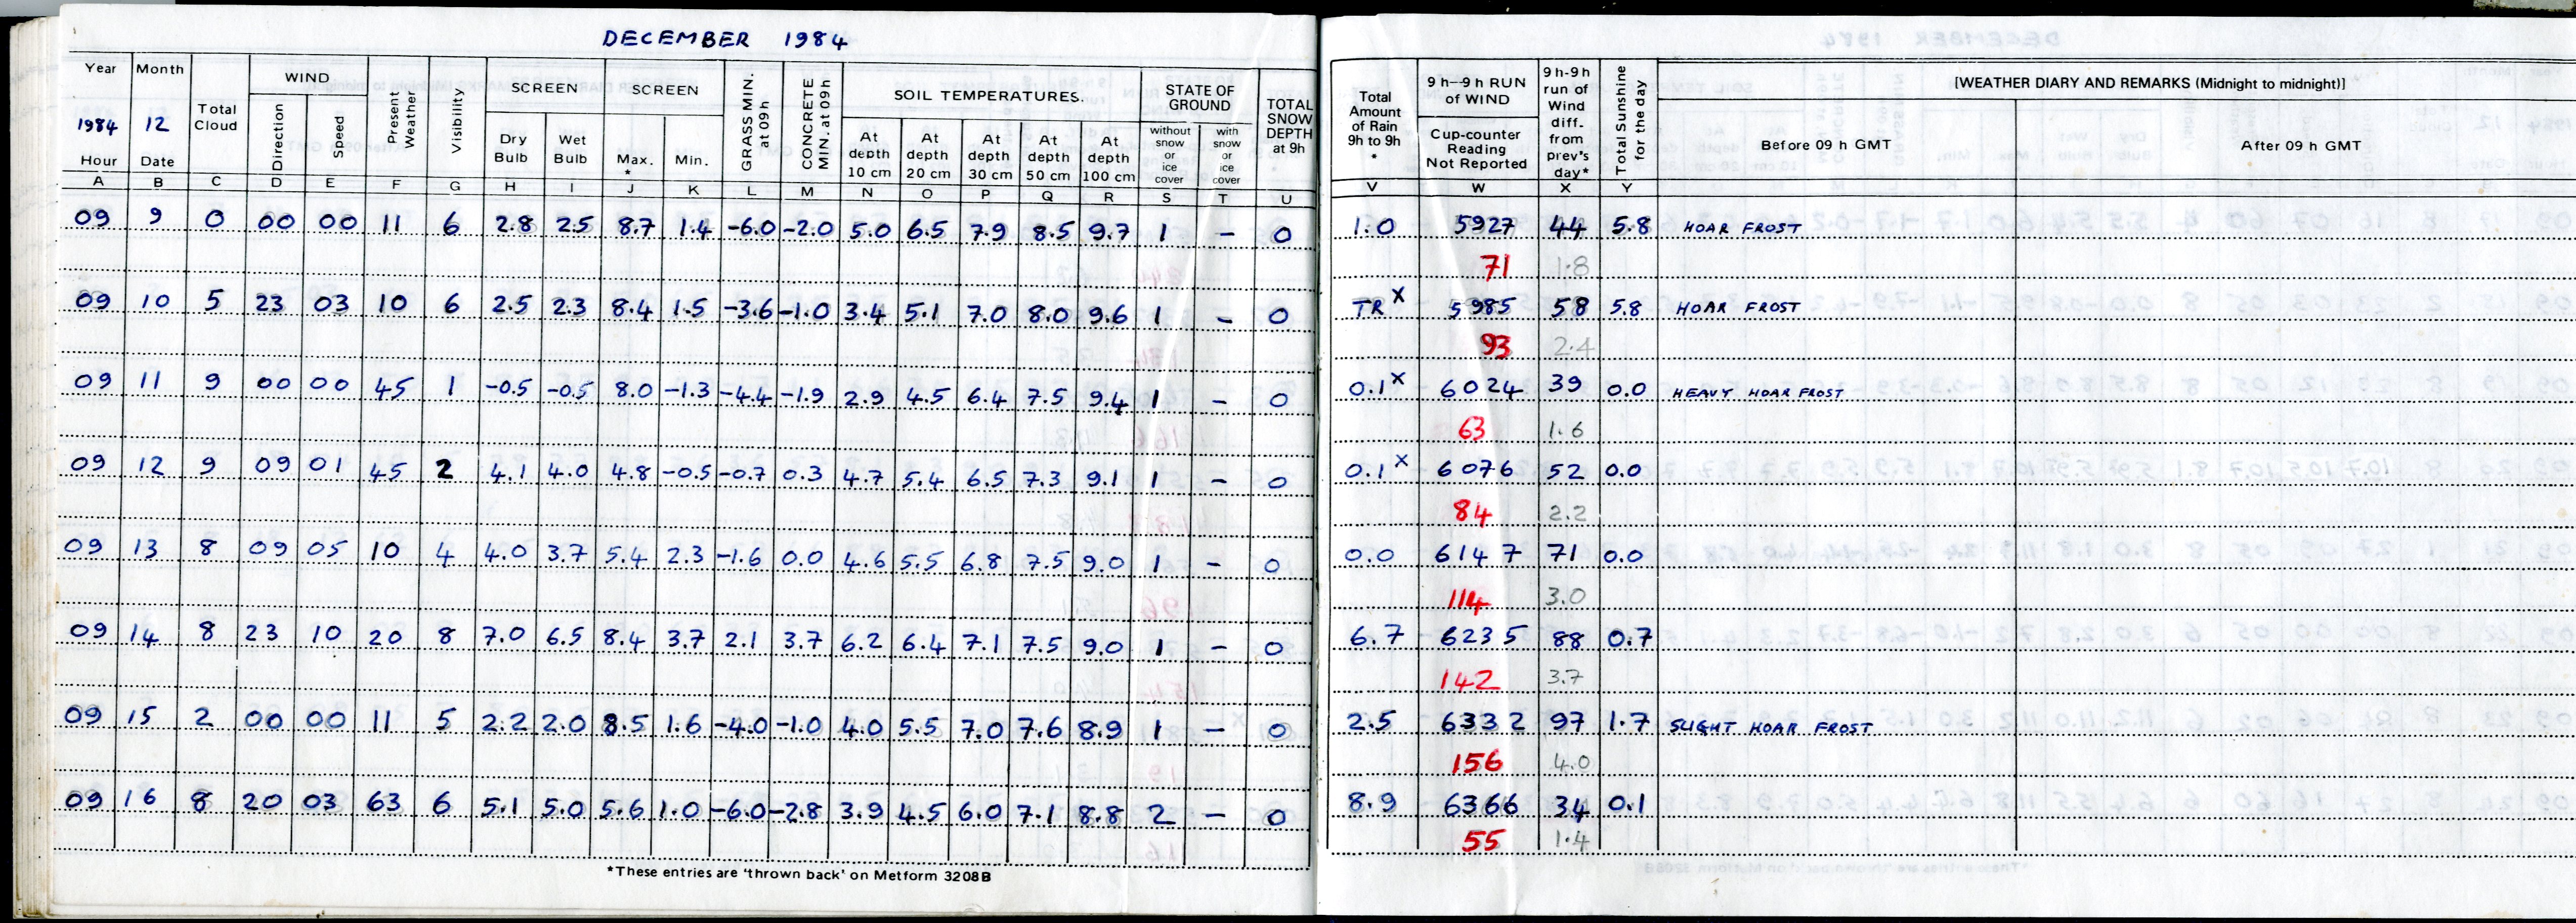 DECEMBER 1984
Year Month Total Cloud WIND Present Weather Visibility SCREEN SCREEN GRASS MIN. at 09h CONCRETE MIN. at 09h SOIL TEMPERATURES. STATE OF GROUND TOTAL SNOW DEPTH at 9h
1984 12 Direction Speed Dry Bulb Wet Bulb Max. * Min. At depth 10 cm At depth 20 cm At depth 30 cm At depth 50 cm At depth 100 cm without snow or ice cover with snow or ice cover
Hour Date
A B C D E F G H I J K L M N O P Q R S T U
09 9 0 00 00 11 6 2.8 2.5 8.7 1.4 -6.0 -2.0 5.0 6.5 7.9 8.5 9.7 1 – 0
09 10 5 23 03 10 6 2.5 2.3 8.4 1.5 -3.6 -1.0 3.4 5.1 7.0 8.0 9.6 1 – 0
09 11 9 00 00 45 1 -0.5 -0.5 8.0 -1.3 -4.4 -1.9 2.9 4.5 6.4 7.5 9.4 1 – 0
09 12 9 09 01 45 2 4.1 4.0 4.8 -0.5 -0.7 0.3 4.7 5.4 6.5 7.3 9.1 1 – 0
09 13 8 09 05 10 4 4.0 3.7 5.4 2.3 -1.6 0.0 4.6 5.5 6.8 7.5 9.0 1 – 0
09 14 8 23 10 20 8 7.0 6.5 8.4 3.7 2.1 3.7 6.2 6.4 7.1 7.5 9.0 1 – 0
09 15 2 00 00 11 5 2.2 2.0 8.5 1.6 -4.0 -1.0 4.0 5.5 7.0 7.6 8.9 1 – 0
09 16 8 20 03 63 6 5.1 5.0 5.6 1.0 -6.0 -2.8 3.9 4.5 6.0 7.1 8.8 2 – 0
*These entries are 'thrown back' on Metform 3208B
Total Amount of Rain 9h to 9h * 9 h–9 h RUN of WIND 9 h-9h run of Wind diff. from prev's day* Total Sunshine for the day [WEATHER DIARY AND REMARKS (Midnight to midnight)]
Cup-counter Reading Not Reported Before 09 h GMT After 09 h GMT
V W X Y
1.0 5927 44 5.8 HOAR FROST
71 1.8
TR x 5985 58 5.8 HOAR FROST
93 2.4
0.1 x 6024 39 0.0 HEAVY HOAR FROST
63 1.6
0.1 x 6076 52 0.0
84 2.2
0.0 6147 71 0.0
114 3.0
6.7 6235 88 0.7
142 3.7
2.5 6332 97 1.7 SLIGHT HOAR FROST
156 4.0
8.9 6366 34 0.1
55 1.4